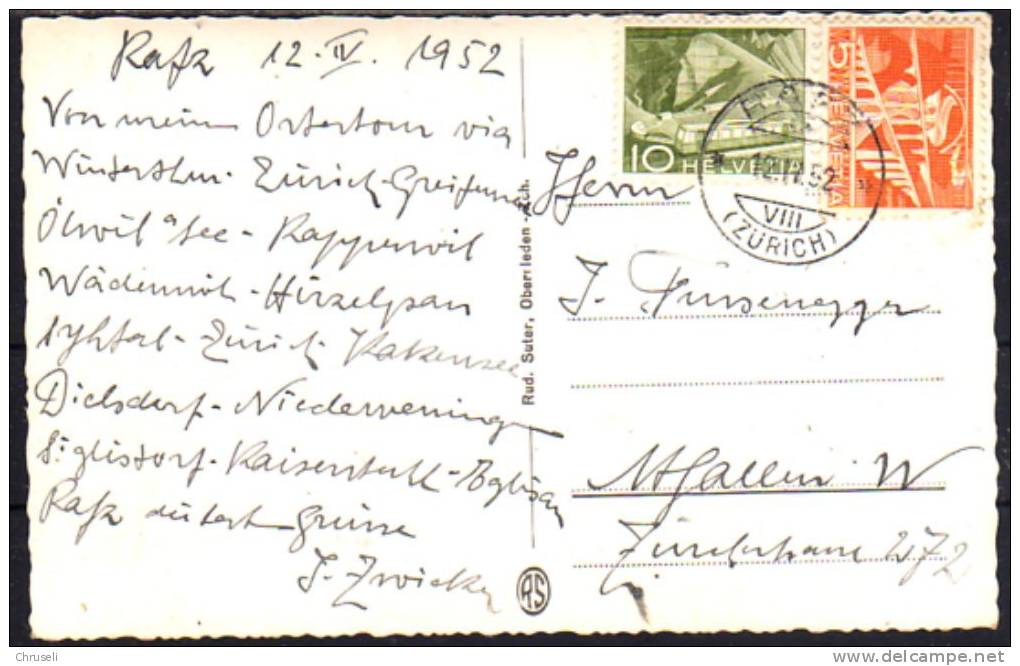 Rafz 12. IV. 1952
Von meiner Ostertour via
Winterthur-Zürich-Greifensee
Ötwil a/See - Rapperswil
Wädenswil - Hirzelpass
Sihltal - Zürich - Katzensee
Dielsdorf - Niederweningen
Siglisdorf - Kaiserstuhl - Eglisau
Rafz sendet Grüsse
J. Zwicker
Rud. Suter, Oberrieden-Zch.
RS
10 HELVETIA
5 HELVETIA
12.IV.52
VIII
(ZÜRICH)
Herrn
J.
St Gallen W
Zürcherstrasse 272
© Chruseli